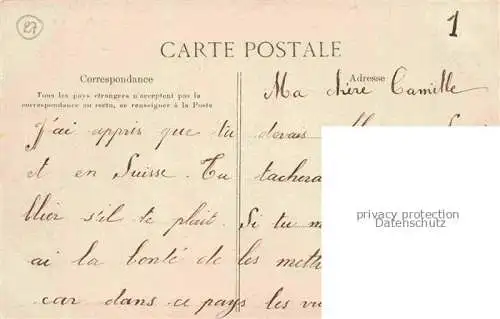 27
1
CARTE POSTALE
Correspondance
Adresse
Tous les pays étrangers n'acceptent pas la
correspondance au recto, se renseigner à la Poste
Ma chère Camille
J'ai appris que tu devais
et en Suisse. Tu tachera
llier s'il te plait. Si tu m
ai la bonté de les mettr
car dans ce pays les vu
privacy protection
Datenschutz